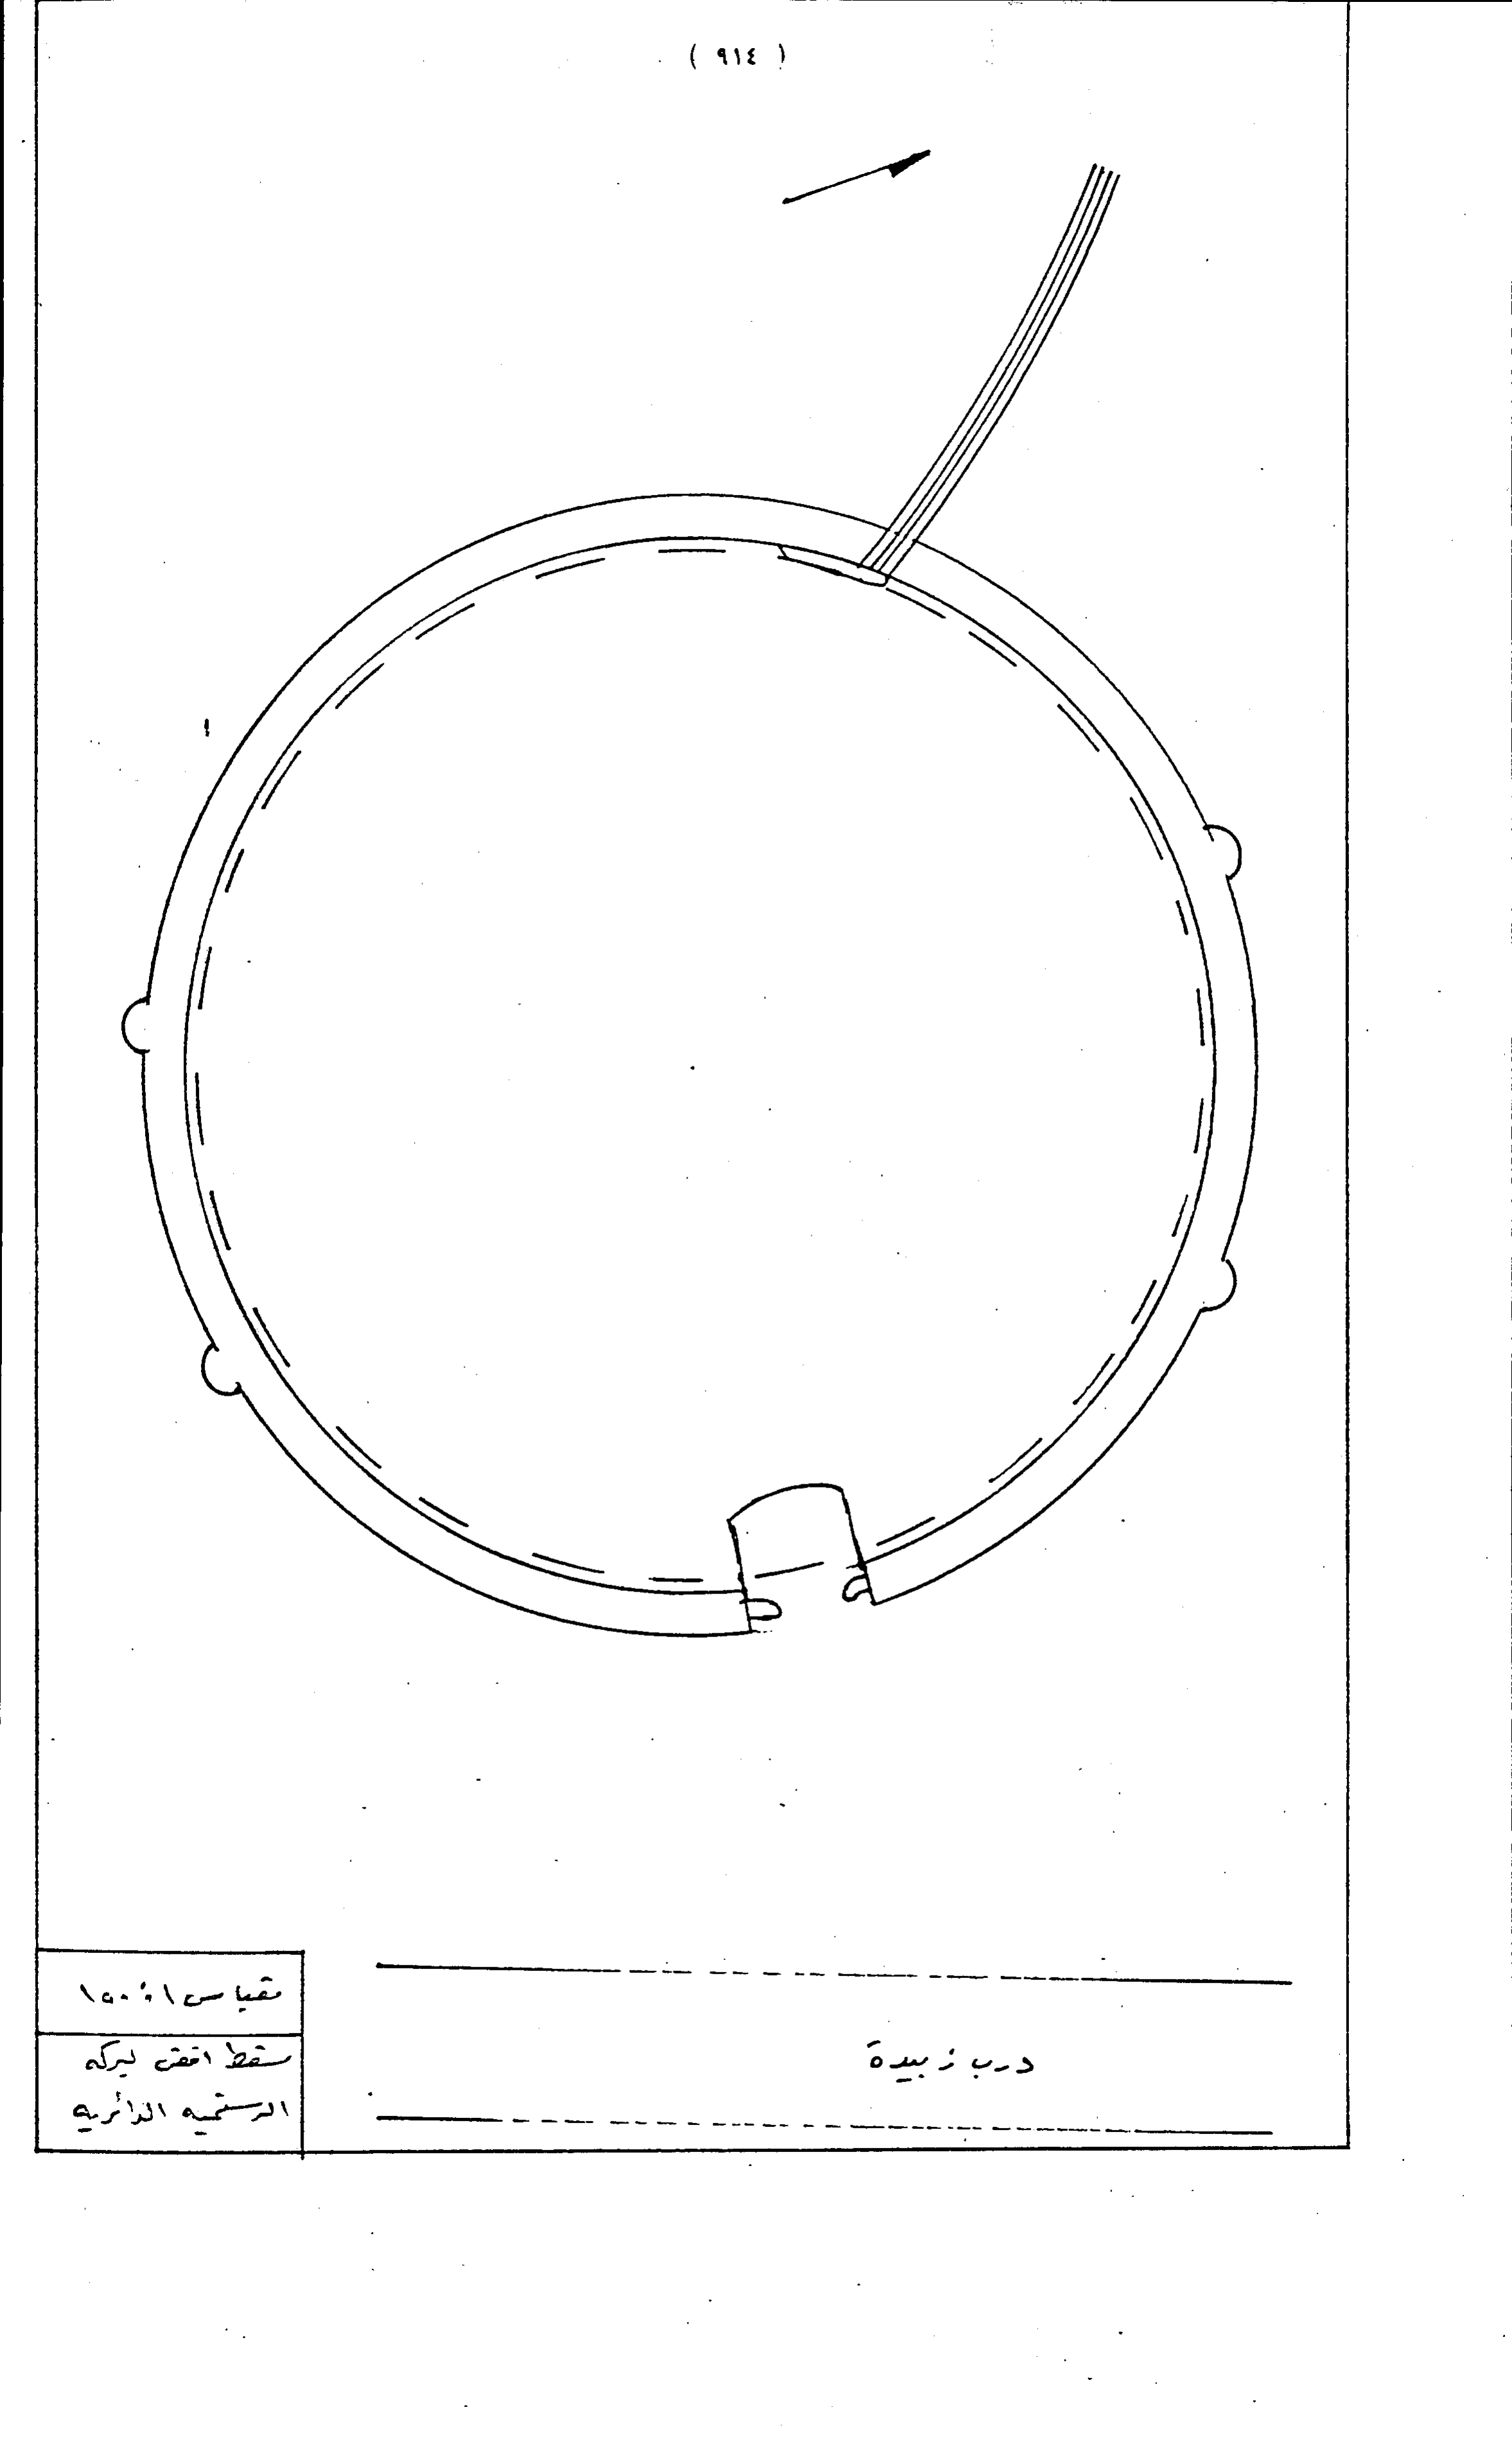 ( ٩١٤ )
درب زبيدة
مقياس
مسقط افقى لبركه
الرستميه الدائريه